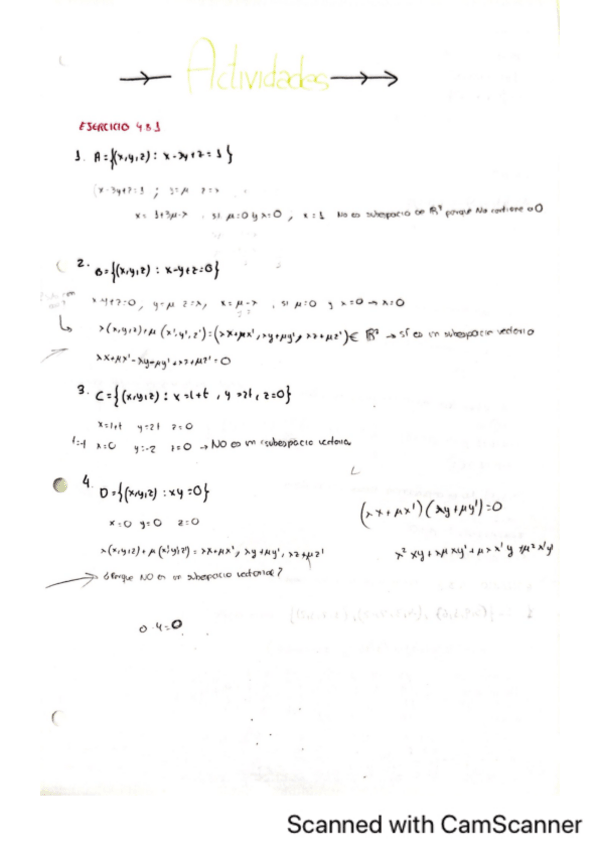 Actividades
EJERCICIO 4B1
1. A={(x,y,z): x-3y+z=1}
x-3y+z=1 ; y=μ z=λ
x= 1+3μ-λ . si μ=0 y λ=0, x=1 No es subespacio de porque No contiene a 0
2. B={(x,y,z): x-y+z=0}
x-y+z=0, y=μ z=λ, x=μ-λ , si μ=0 y λ=0 → x=0
λ(x,y,z)+μ(x',y',z')=(λx+μx', λy+μy', λz+μz')∈ → sí es un subespacio vectorial
λx+μx'-λy-μy'+λz+μz'=0
3. C={(x,y,z): x=1+t, y=2t, z=0}
x=1+t y=2t z=0
x=0 y=-2 z=0 → NO es un subespacio vectorial
4. D={(x,y,z): xy=0}
(λx+μx')(λy+μy')=0
x=0 y=0 z=0
λ(x,y,z)+μ(x',y',z')=λx+μx', λy+μy', λz+μz'
λ² xy + λμ xy' + μλ x'y + μ² x'y'
¿Porque NO es un subespacio vectorial?
Scanned with CamScanner